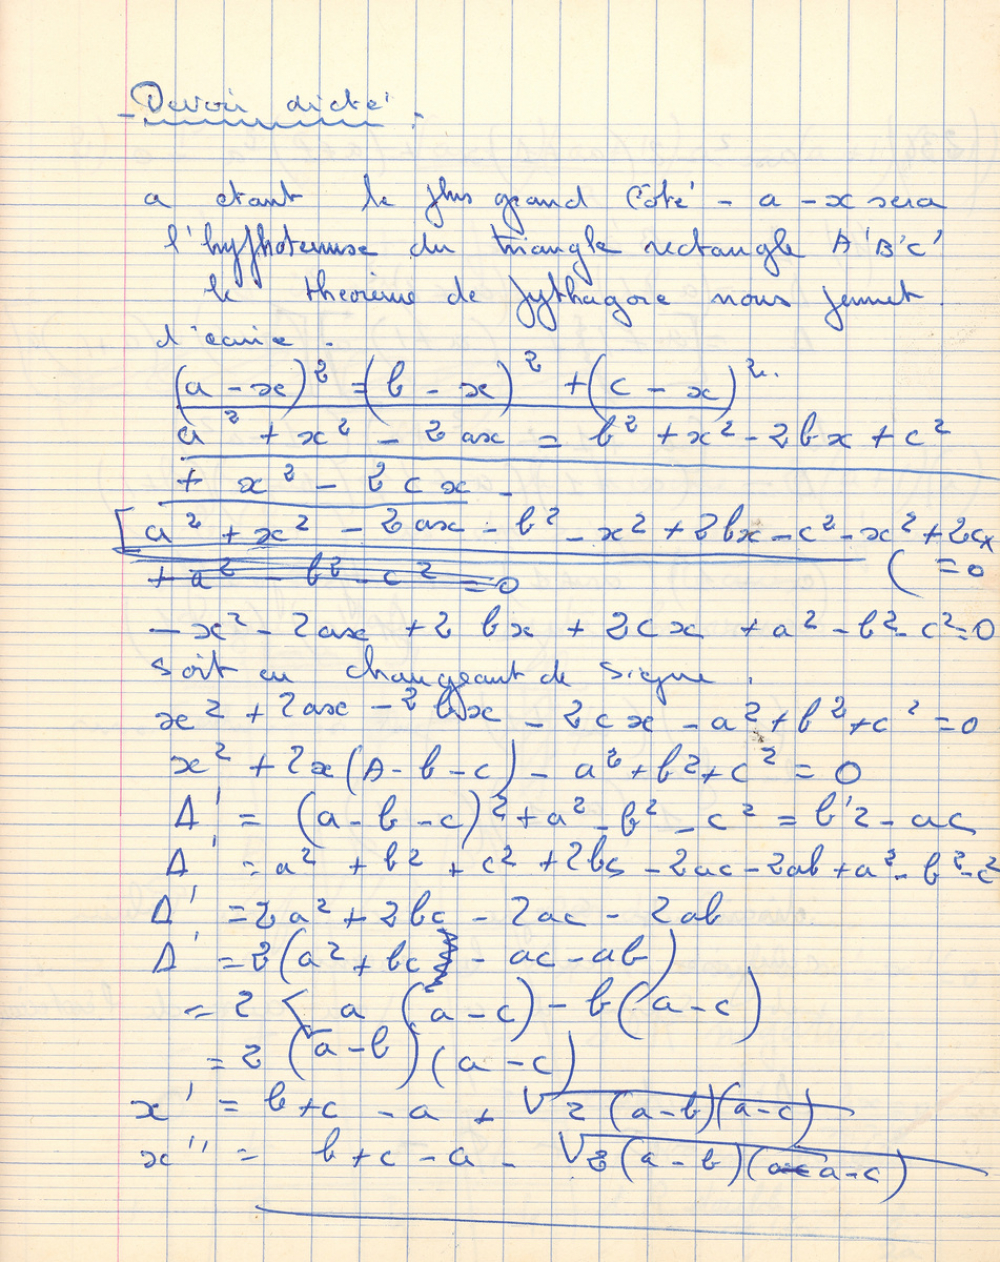 - Devoir dicté -
a etant le plus grand Côté - a - x sera
l'hypotenuse du triangle rectangle A'B'C'
le theorème de pythagore nous permet
d'écrire.
(a - x)² = (b - x)² + (c - x)².
a² + x² - 2ax = b² + x² - 2bx + c²
+ x² - 2cx -
[a² + x² - 2ax - b² - x² + 2bx - c² - x² + 2cx
( = 0
+ a² - b² - c² = 0
- x² - 2ax + 2bx + 2cx + a² - b² - c² = 0
Soit en changeant de signe.
x² + 2ax - 2bx - 2cx - a² + b² + c² = 0
x² + 2x(A - b - c) - a² + b² + c² = 0
Δ' = (a - b - c)² + a² - b² - c² = b'2 - ac
Δ' = a² + b² + c² + 2bc - 2ac - 2ab + a² - b² - c²
Δ' = 2a² + 2bc - 2ac - 2ab
Δ' = 2(a² + bc - ac - ab)
= 2 [ a (a - c) - b(a - c)
= 2 (a - b)(a - c)
x' = b + c - a + √2 (a - b)(a - c)
x'' = b + c - a - √2 (a - b)(a - c)